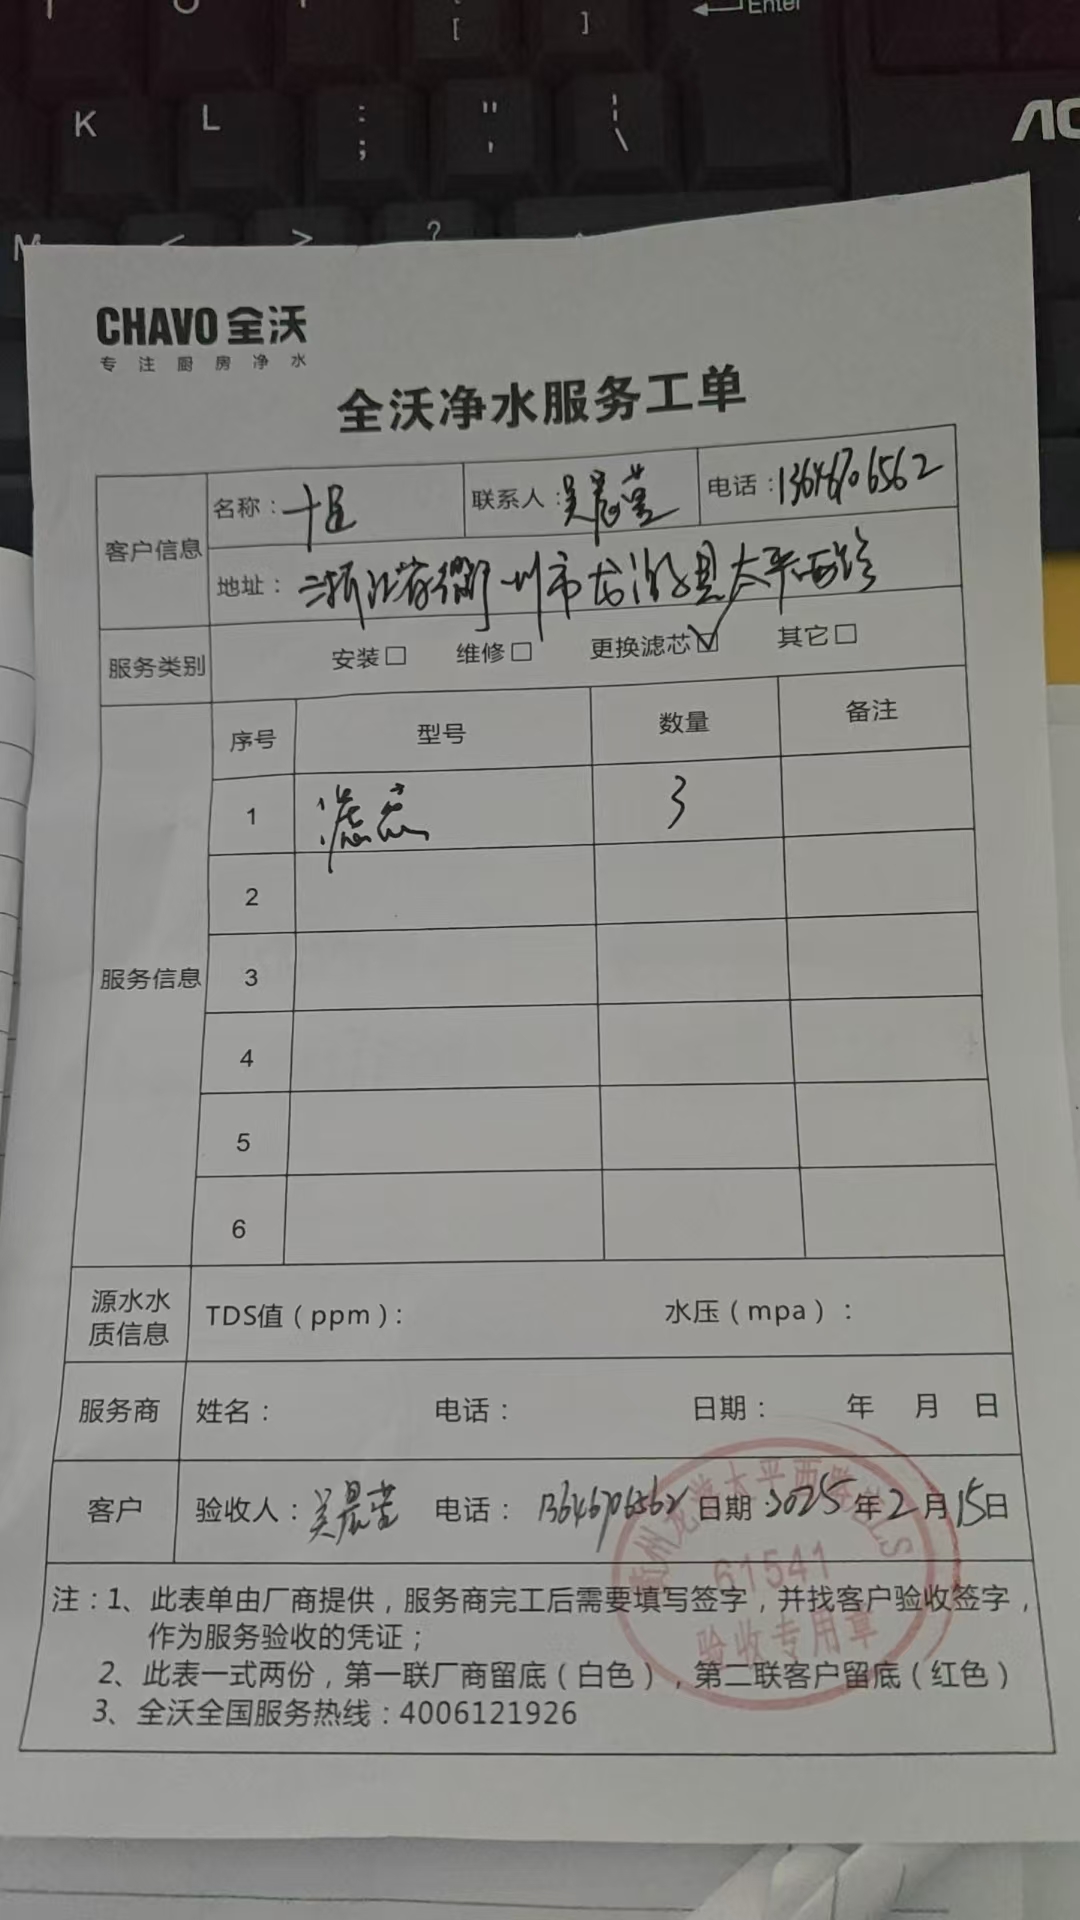 Enter
[ ]
K L : ; " ' ¦ \
M < > ?
AO
CHAVO 全沃
专注厨房净水
全沃净水服务工单
客户信息 名称: 联系人:吴晨莹 电话:13646706562
地址:浙江省衢州市龙游县太平西路
服务类别 安装☐ 维修☐ 更换滤芯☑ 其它☐
服务信息 序号 型号 数量 备注
1 滤芯 3
2
3
4
5
6
源水水质信息 TDS值(ppm): 水压(mpa):
服务商 姓名: 电话: 日期: 年 月 日
客户 验收人:吴晨莹 电话:13646706562 日期:2025年2月15日
州龙游太平西路
61541
验收专用章
注:1、此表单由厂商提供,服务商完工后需要填写签字,并找客户验收签字,
作为服务验收的凭证;
2、此表一式两份,第一联厂商留底(白色),第二联客户留底(红色)
3、全沃全国服务热线:4006121926